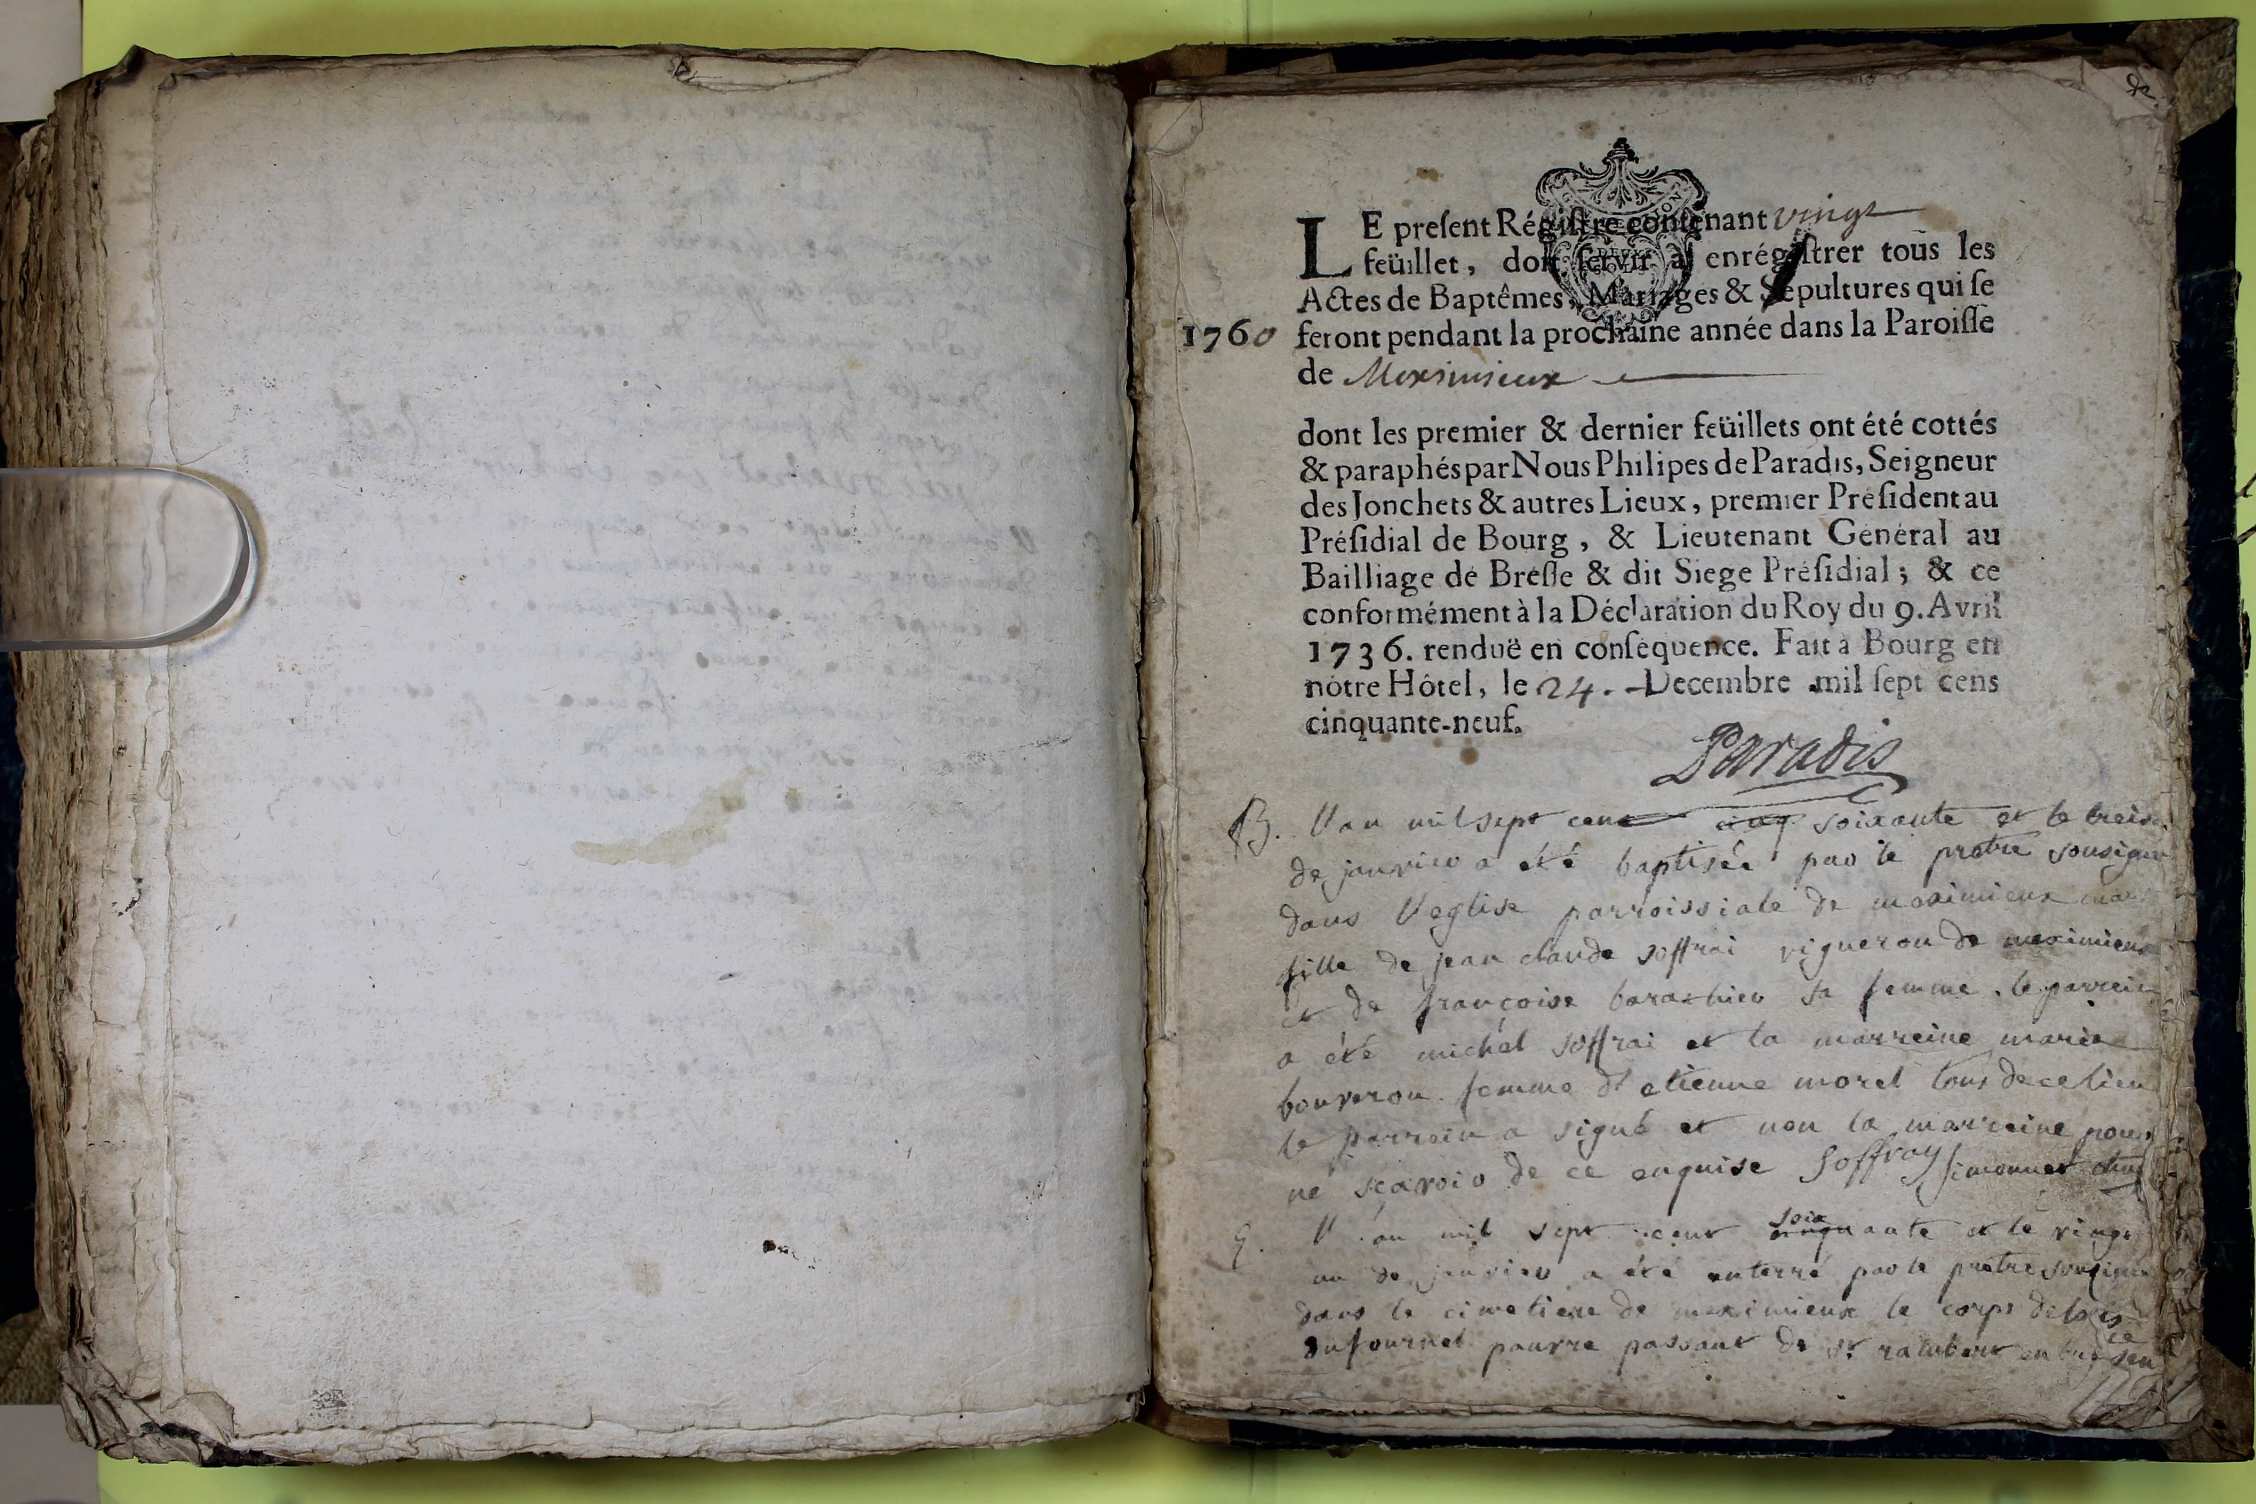 LE preſent Régiſtre contenant vingt
feüillet, doit ſervir à enrégiſtrer tous les
Actes de Baptêmes, Mariages & Sépultures qui ſe
1760 feront pendant la prochaine année dans la Paroiſſe
de Meximieux
dont les premier & dernier feüillets ont été cottés
& paraphés par Nous Philipes de Paradis, Seigneur
des Jonchets & autres Lieux, premier Préſident au
Préſidial de Bourg, & Lieutenant Général au
Bailliage de Breſſe & dit Siege Préſidial; & ce
conformément à la Déclaration du Roy du 9. Avril
1736. renduë en conſequence. Fait à Bourg en
nôtre Hôtel, le 24. Decembre mil ſept cens
cinquante-neuf.
Paradis
B. l'an mil sept cent cinq soixante et le treize
de janvier a été baptisée par le prêtre sousigné
dans l'eglise parroissiale de meximieux
fille de jean claude soffrai vigneron de meximieux
et de françoise sa femme. le parrein
a été michel soffrai et la marreine marie
bouveron femme d'etienne morel tous de ce lieu
le parrein a signé et non la marreine pour
ne sçavoir de ce enquise Soffray simonnet
l'an mil sept cent soixante et le vingt
un de janvier a été enterré par le prêtre sousigné
dans le cimetiere de meximieux le corps de
dufournel pauvre passant de st rambert en